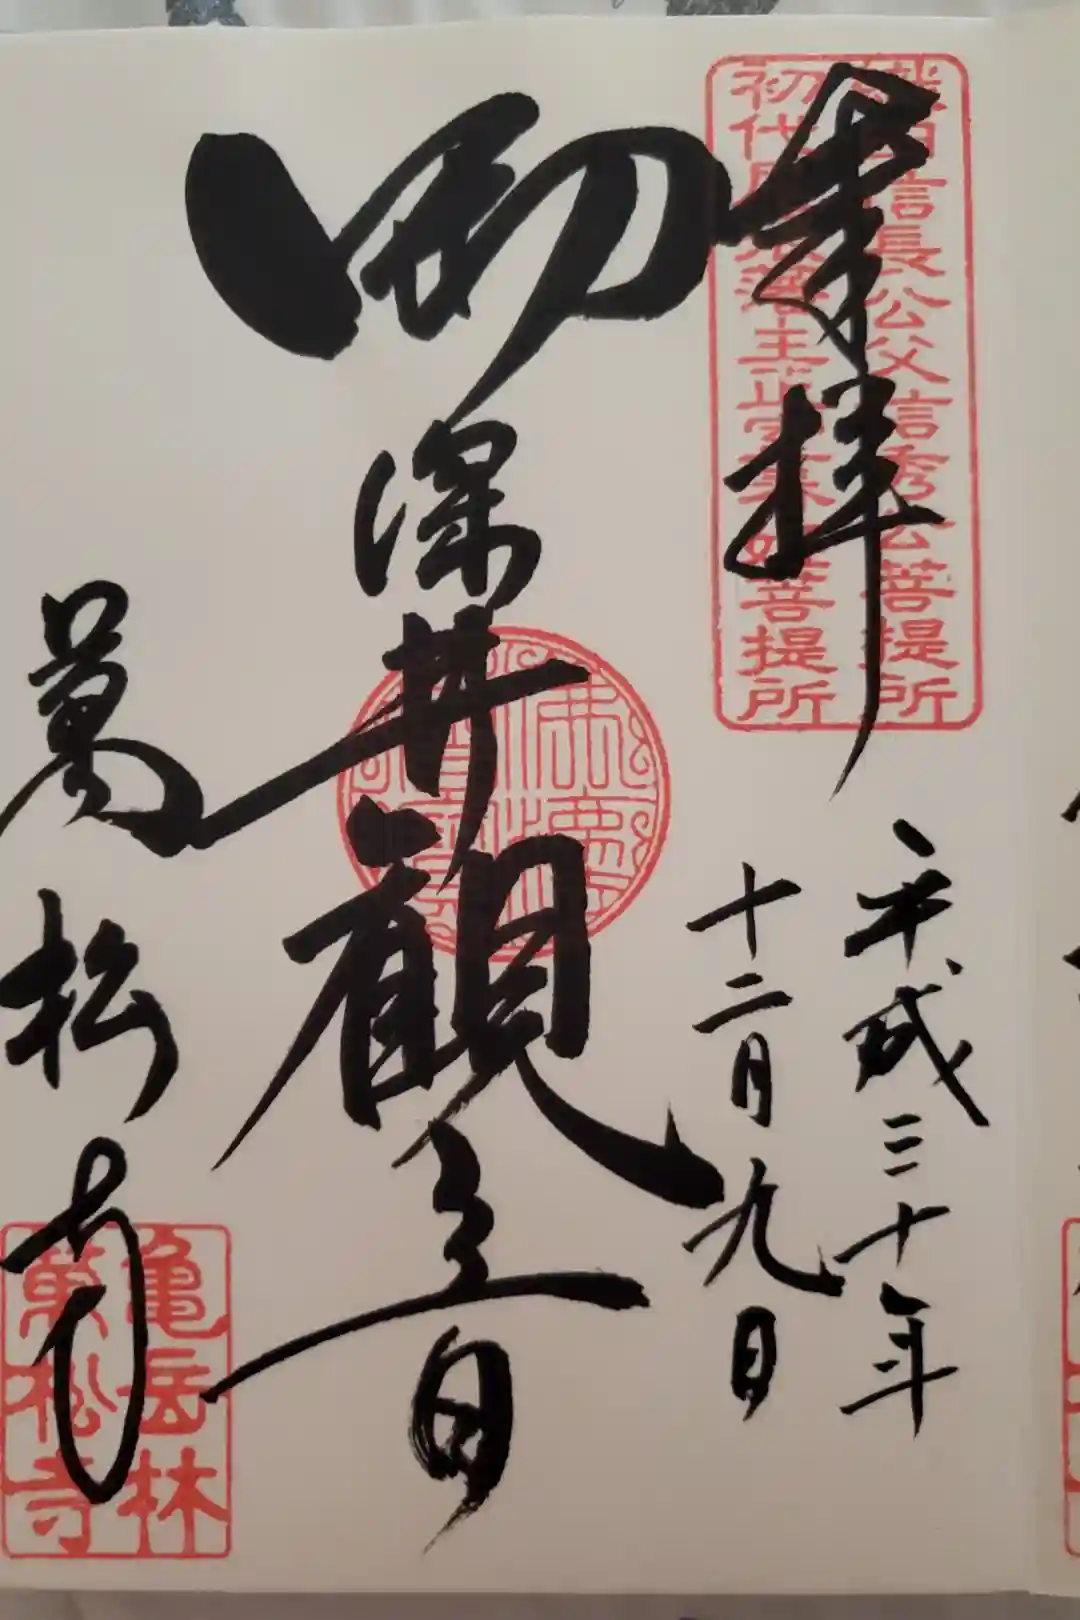 奉拝
織田信長公父信秀公菩提所
初代尾張藩主正室春姫菩提所
平成三十年
十二月九日
御深井観音
佛法僧寶
萬松寺
亀岳林
萬松寺